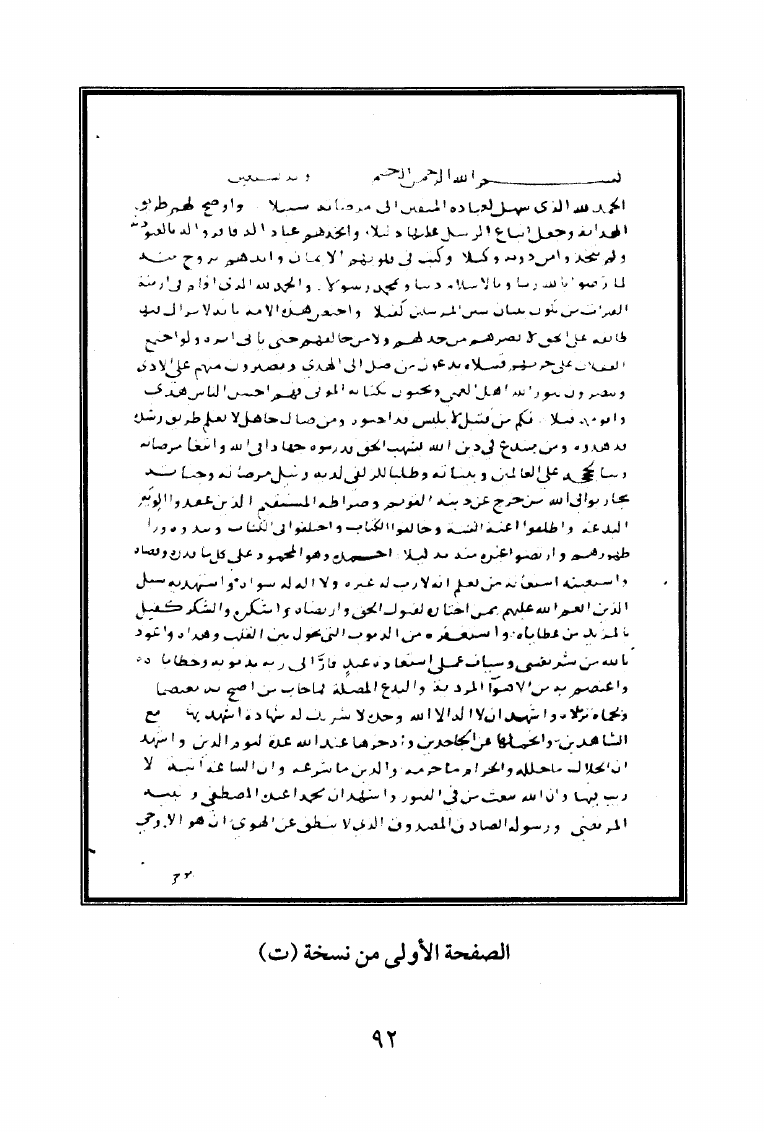 بسم الله الرحمن الرحيم وبه نستعين
الحمد لله الذي سهل لعباده المتقين الى مرضاته سبيلا واوضح لهم طريق
الهداية وجعل اتباع الرسل عليها دليلا واتخذهم عبادا له فاقروا له بالعبودية
ولم يتخذوا من دونه وكيلا وكتب في قلوبهم الايمان وايدهم بروح منه
لما رضوا بالله ربا وبالاسلام دينا وبمحمد رسولا والحمد لله الذي اقام في ازمنة
الفترات من يكون ببيان سنن المرسلين كفيلا واختص هذه الامة بانه لا يزال فيها
طائفة على الحق لا يضرهم من خذلهم ولا من خالفهم حتى ياتي امره ولو اجتمع
الثقلان على حربهم قبيلا يدعون من ضل الى الهدى ويصبرون منهم على الاذى
ويبصرون بنور الله اهل العمى ويحيون بكتابه الموتى فهم احسن الناس هديا
واقومهم قيلا فكم من قتيل لابليس قد احيوه ومن ضال جاهل لا يعلم طريق رشده
قد هدوه ومن مبتدع في دين الله بشهب الحق قد رموه جهادا في الله وابتغا مرضاته
وبيانا لحججه على العالمين وبيناته وطلبا للزلفى لديه ونيل مرضاته وجناته
فحاربوا في الله من خرج عن دينه القويم وصراطه المستقيم الذين عقدوا الوية
البدعة واطلقوا اعنة الفتنة وخالفوا الكتاب واختلفوا في الكتاب ونبذوه ورا
ظهورهم وارتضوا غيره منه بديلا احمده وهو المحمود على كل ما قدره وقضاه
واستعينه استعانة من يعلم انه لا رب له غيره ولا اله له سواه واستهديه سبيل
الذين انعم الله عليهم ممن اختاره لقبول الحق وارتضاه واشكره والشكر كفيل
بالمزيد من عطاياه واستغفره من الذنوب التي تحول بين القلب وهداه واعوذ
بالله من شر نفسي وسيات عملي استعاذة عبد فار الى ربه بذنوبه وخطاياه
واعتصم به من الاهوا المردية والبدع المضلة فما خاب من اصبح به معتصما
وبحماه نزيلا واشهد ان لا اله الا الله وحده لا شريك له شهادة اشهد بها مع
الشاهدين واتحملها عن الجاحدين وادخرها عند الله عدة ليوم الدين واشهد
ان الحلال ما حلله والحرام ما حرمه والدين ما شرعه وان الساعة اتية لا
ريب فيها وان الله يبعث من في القبور واشهد ان محمدا عبده المصطفى ونبيه
المرتضى ورسوله الصادق المصدوق الذي لا ينطق عن الهوى ان هو الا وحي
الصفحة الأولى من نسخة (ت)
٩٢